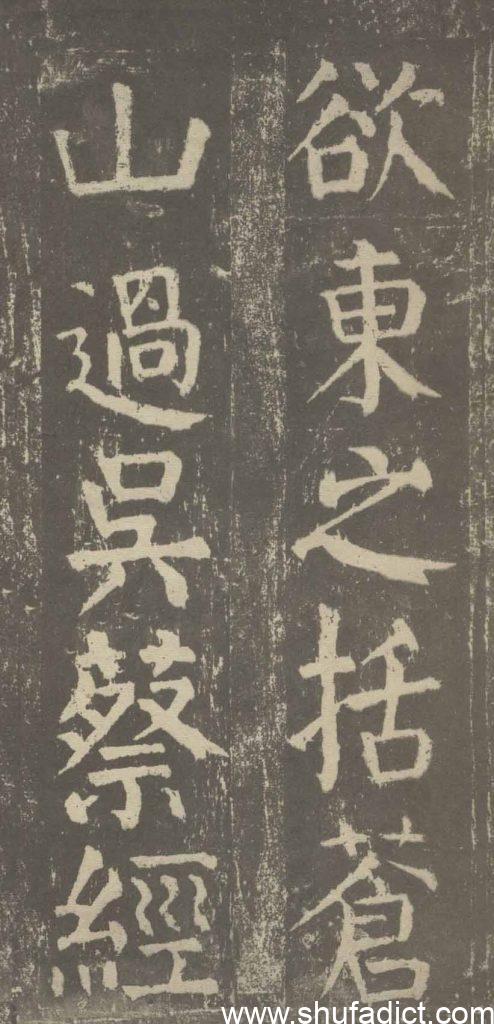 欲東之括蒼
山過吳蔡經
www.shufadict.com